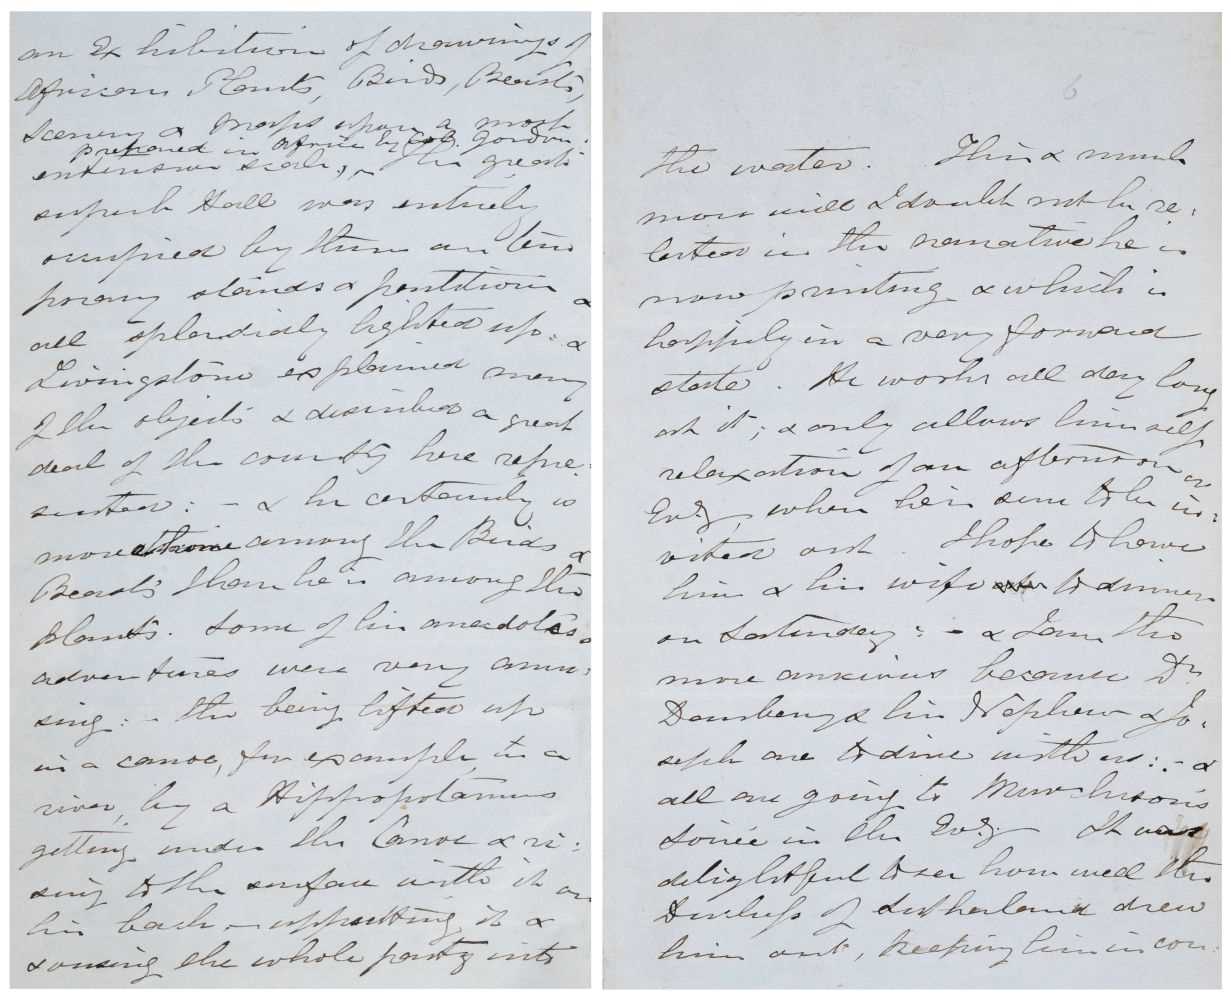 an Exhibition of drawings of
African Plants, Birds, Beasts,
Scenery & maps upon a most
prepared in Africa by Col. Gordon:
extensive scale, The great
superb Hall was entirely
occupied by them on tem
porary stands & partitions &
all splendidly lighted up: &
Livingstone explained many
of the objects & described a great
deal of the country here repre:
sented: - & he certainly is
more at home among the Birds &
Beasts than he is among the
plants. Some of his anecdotes &
adventures were very amu:
sing: - the being lifted up
in a canoe, for example, in a
river, by a Hippopotamus
getting under the Canoe & ri:
sing to the surface with it on
his back - upsetting it &
sousing the whole party into
6
the water. This & much
more will I doubt not be re:
lated in the narrative he is
now printing & which is
happily in a very forward
state. He works all day long
at it; & only allows himself
relaxation of an afternoon or
Evg, when he is sure to be in:
vited out. I hope to have
him & his wife to dinner
on Saturday: - & I am the
more anxious because Dr
Daubeny & his Nephew & Jo:
seph are to dine with us: - &
all are going to Murchison's
Soirée in the Evg. It was
delightful to see how well the
Duchess of Sutherland drew
him out, keeping him in con: